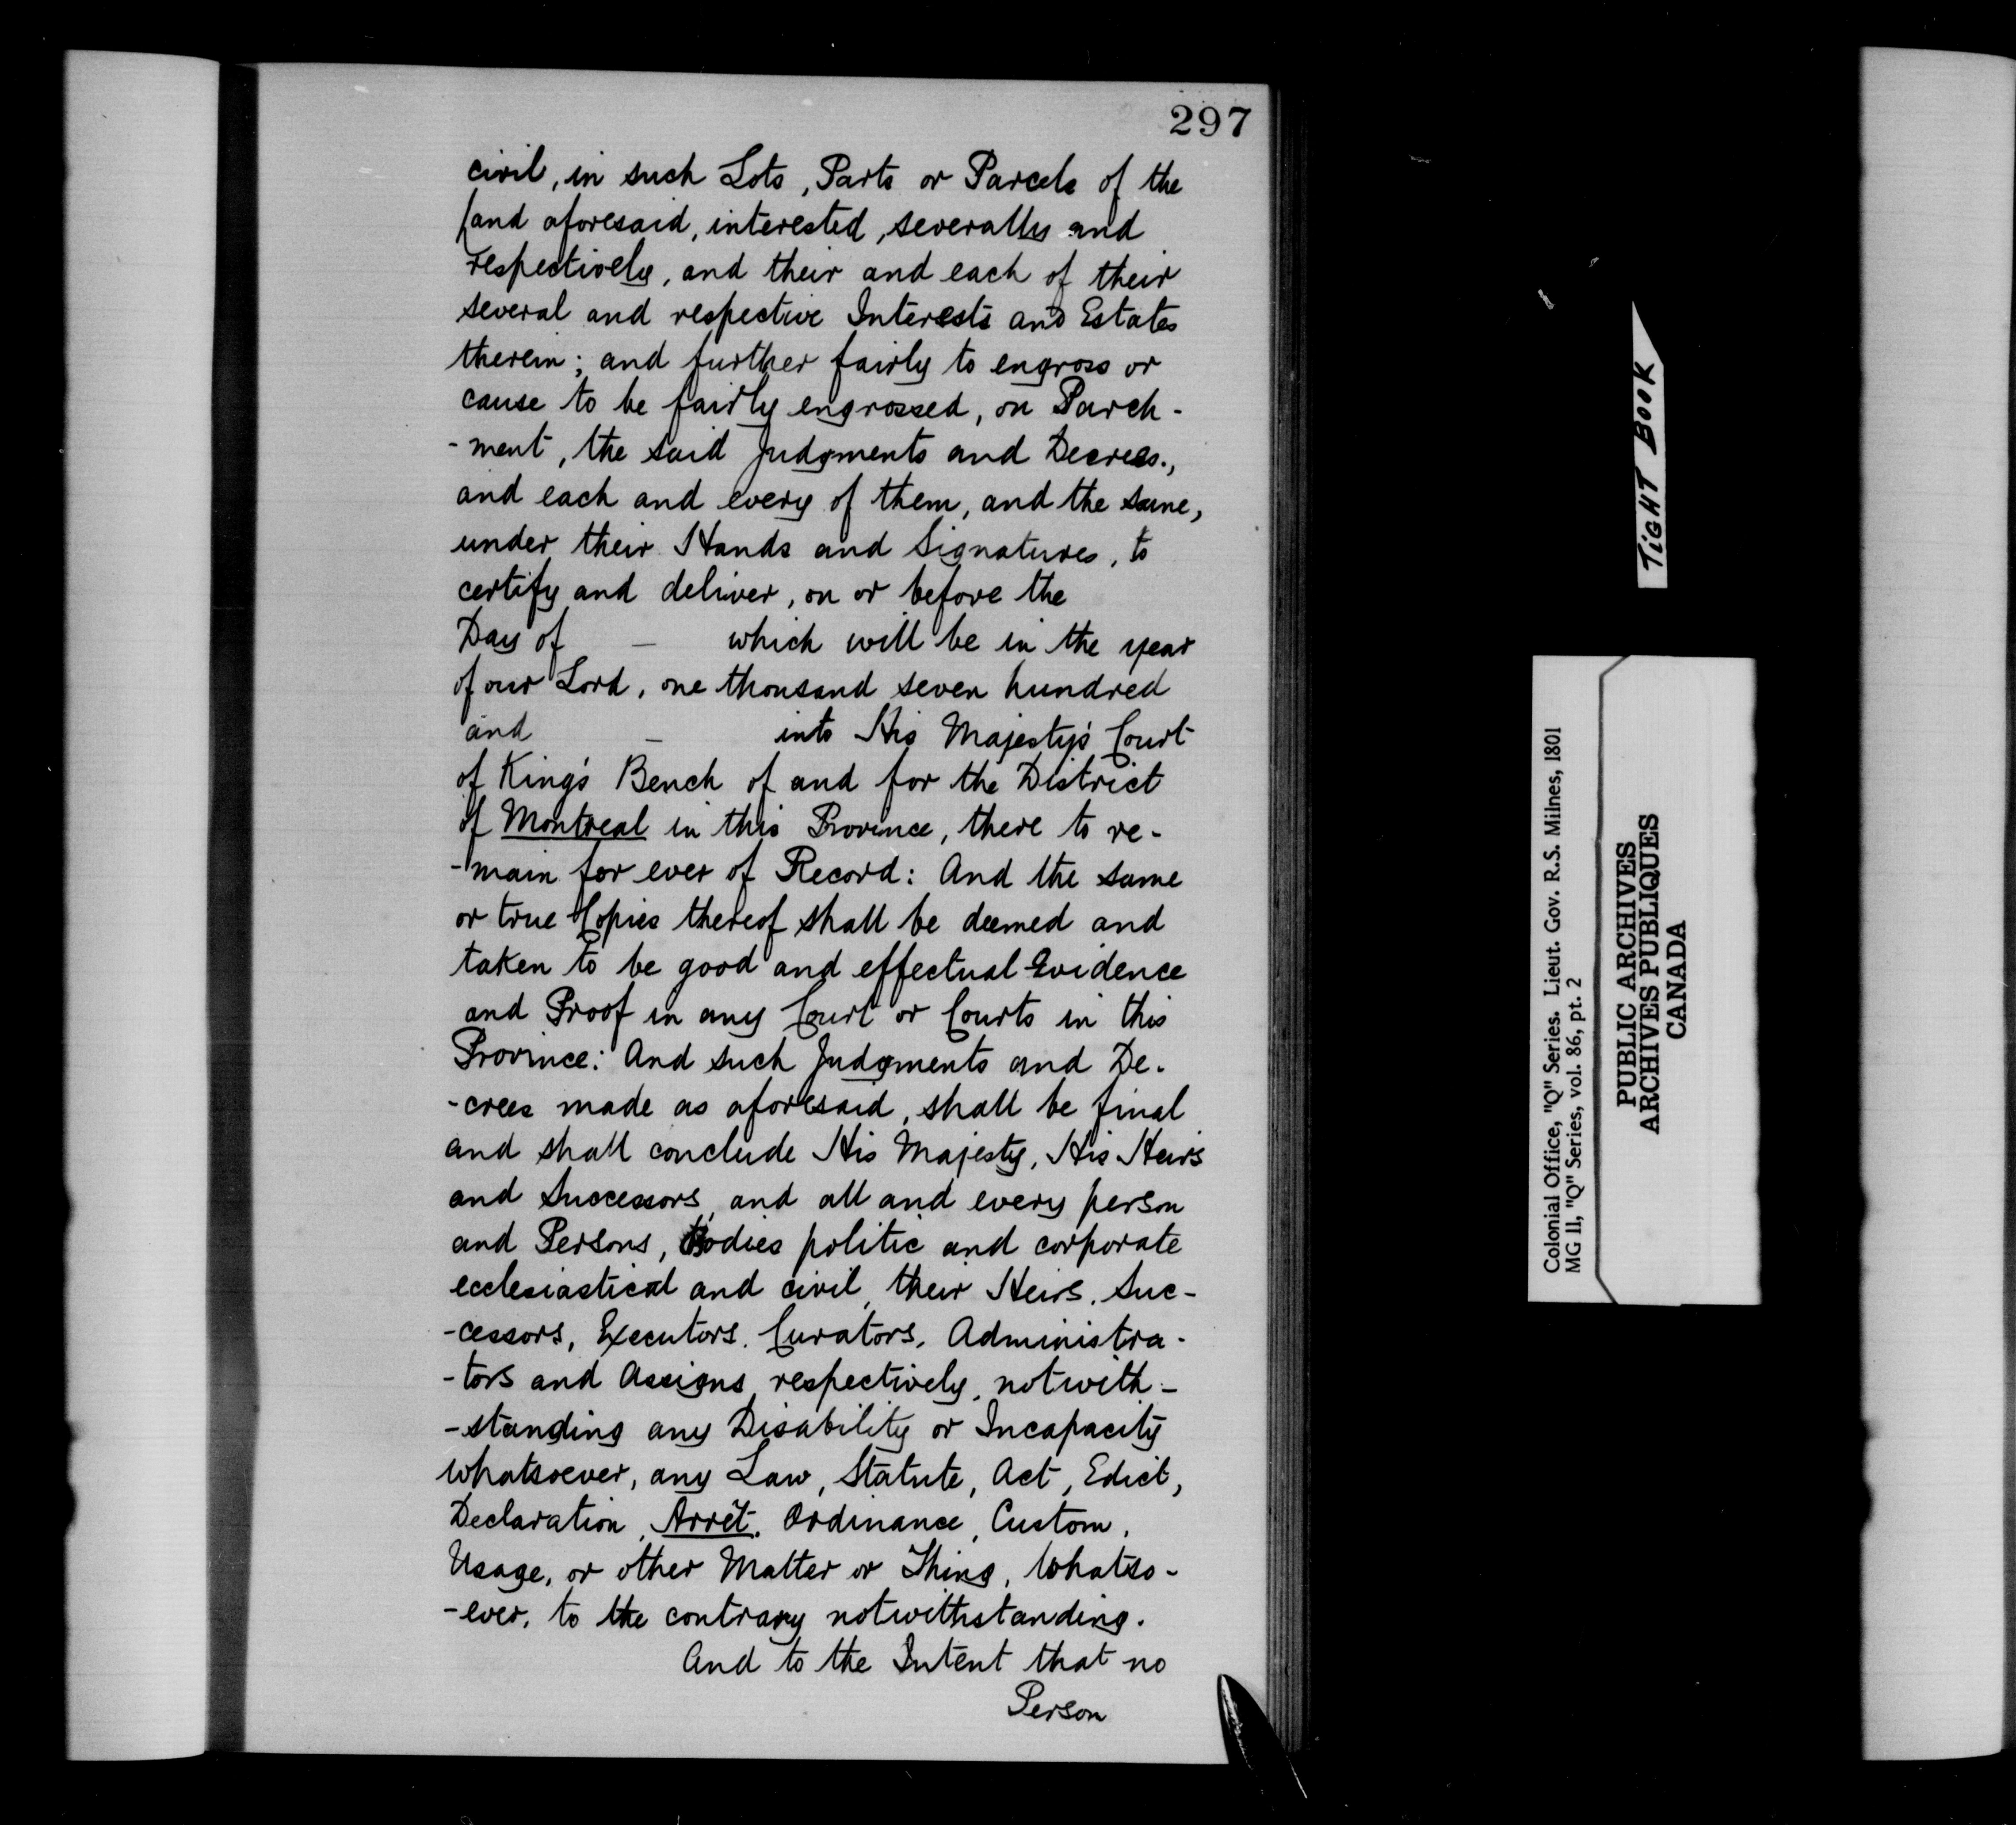 297
civil, in such Lots, Parts or Parcels of the
land aforesaid, interested, severally and
respectively, and their and each of their
several and respective Interests and Estates
therein; and further fairly to engross or
cause to be fairly engrossed, on Parch-
-ment, the said Judgments and Decrees.,
and each and every of them, and the same,
under their Hands and Signatures, to
certify and deliver, on or before the
Day of — which will be in the year
of our Lord, one thousand seven hundred
and — into His Majesty's Court
of King's Bench of and for the District
of Montreal in this Province, there to re-
-main for ever of Record: And the same
or true Copies thereof shall be deemed and
taken to be good and effectual Evidence
and Proof in any Court or Courts in this
Province: And such Judgments and De-
-crees made as aforesaid, shall be final
and shall conclude His Majesty, His Heirs
and Successors, and all and every person
and Persons, Bodies politic and corporate
ecclesiastical and civil, their Heirs, Suc-
-cessors, Executors, Curators, Administra-
-tors and Assigns, respectively, notwith-
-standing any Disability or Incapacity
whatsoever, any Law, Statute, Act, Edict,
Declaration, Arrêt, Ordinance, Custom,
Usage, or other Matter or Thing, Whatso-
-ever, to the contrary notwithstanding.
And to the Intent that no
Person
TIGHT BOOK
Colonial Office, "Q" Series. Lieut. Gov. R.S. Milnes, 1801
MG 11, "Q" Series, vol. 86, pt. 2
PUBLIC ARCHIVES
ARCHIVES PUBLIQUES
CANADA